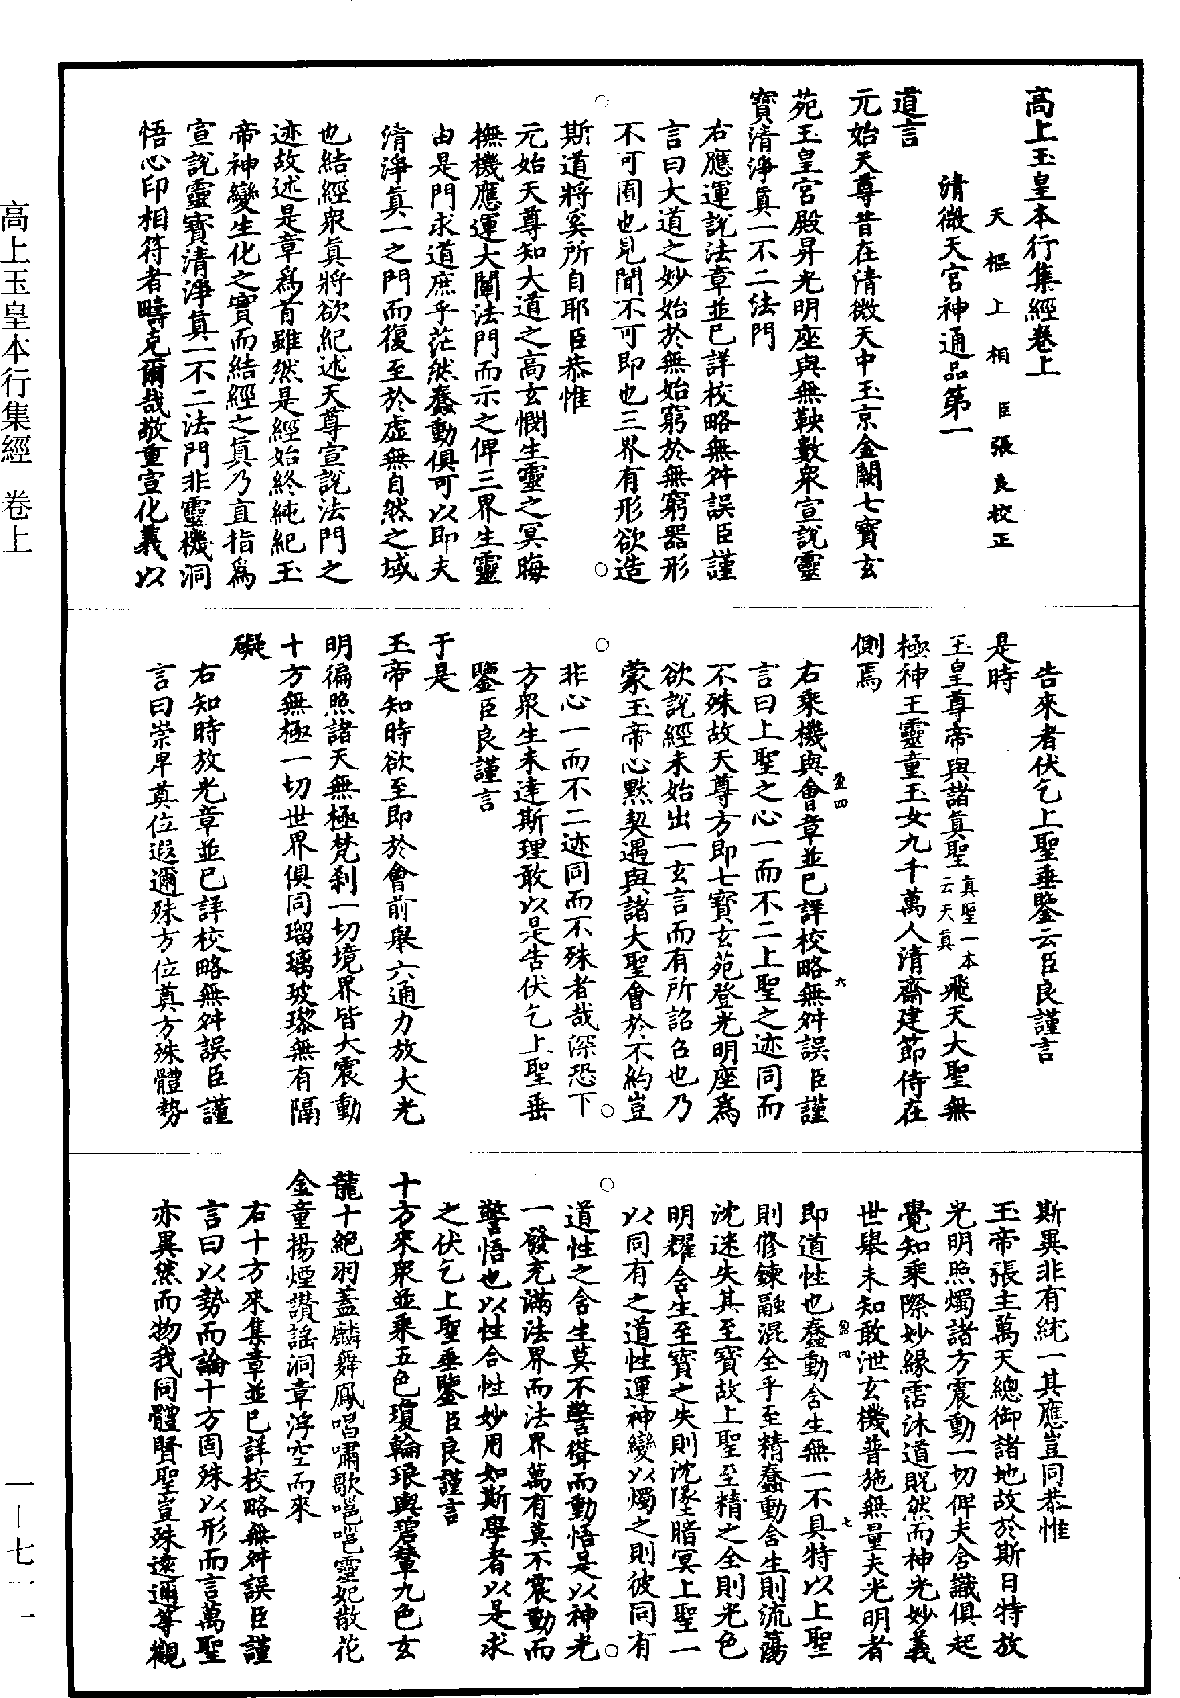 高上玉皇本行集經卷上
天樞上相臣張良校正
清微天宮神通品第一
道言
元始天尊昔在清微天中玉京金闕七寶玄
苑玉皇宮殿昇光明座與無鞅數衆宣說靈
寶清淨真一不二法門
右應運說法章並已詳校略無舛誤臣謹
言曰大道之妙始於無始窮於無窮器形
不可囿也見聞不可即也三界有形欲造
斯道將奚所自耶臣恭惟
元始天尊知大道之高玄憫生靈之冥晦
撫機應運大闡法門而示之俾三界生靈
由是門求道庶乎茫然蠢動俱可以即夫
清淨真一之門而復至於虛無自然之域
也結經衆真將欲紀述天尊宣說法門之
迹故述是章爲首雖然是經始終純紀玉
帝神變生化之實而結經之真乃直指爲
宣說靈寶清淨真一不二法門非靈機洞
悟心印相符者疇克爾哉敬重宣化義以
告來者伏乞上聖垂鑒云臣良謹言
是時
玉皇尊帝與諸真聖真聖一本云天真飛天大聖無
極神王靈童玉女九千萬人清齋建節侍在
側焉
右乘機與會章並已詳校略無舛誤臣謹
言曰上聖之心一而不二上聖之迹同而
不殊故天尊方即七寶玄苑登光明座爲
欲說經未始出一玄言而有所詔召也乃
蒙玉帝心默契遇與諸大聖會於不約豈
非心一而不二迹同而不殊者哉深恐下
方衆生未達斯理敢以是告伏乞上聖垂
鑒臣良謹言
于是
玉帝知時欲至即於會前舉六通力放大光
明徧照諸天無極梵刹一切境界皆大震動
十方無極一切世界俱同瑠璃玻瓈無有隔
礙
右知時放光章並已詳校略無舛誤臣謹
言曰崇卑奠位遐邇殊方位奠方殊體勢
斯異非有統一其應豈同恭惟
玉帝張主萬天總御諸地故於斯日特放
光明照燭諸方震動一切俾夫含識俱起
覺知乘際妙緣霑沐道旣然而神光妙義
世舉未知敢泄玄機普施無量夫光明者
即道性也蠢動含生無一不具特以上聖
則修鍊融混全乎至精蠢動含生則流蕩
沈迷失其至寶故上聖至精之全則光色
明耀含生至寶之失則沈墜暗冥上聖一
以同有之道性運神變以燭之則彼同有
道性之含生莫不警聳而動悟是以神光
一發充滿法界而法界萬有莫不震動而
警悟也以性合性妙用如斯學者以是求
之伏乞上聖垂鑒臣良謹言
十方來衆並乘五色瓊輪琅輿碧輦九色玄
龍十絕羽蓋麟舞鳳唱嘯歌邕邕靈妃散花
金童揚煙讚謠洞章浮空而來
右十方來集章並已詳校略無舛誤臣謹
言曰以勢而論十方固殊以形而言萬聖
亦異然而物我同體賢聖豈殊遠邇等觀
高上玉皇本行集經 卷上
一—七一一